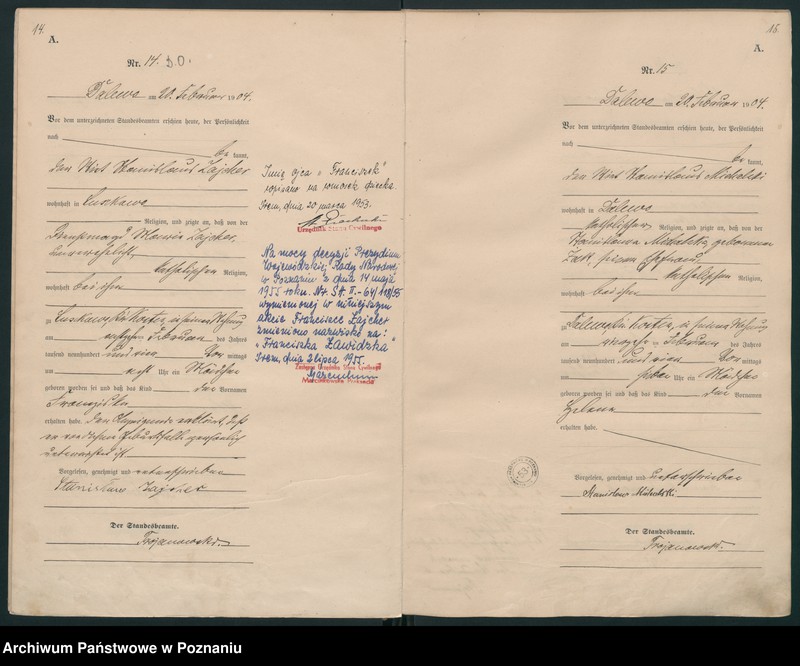 14.
A.
Nr. 14.
Dalewo am 20. Februar 1904.
Vor dem unterzeichneten Standesbeamten erschien heute, der Persönlichkeit
nach
be kannt,
den Wirt Stanislaus Zajcher
wohnhaft in Luskowo
Religion, und zeigte an, daß von der
Marie Zajcher,
unverehelicht
katholischen Religion,
wohnhaft bei ihm
zu Luskowo, in seiner Wohnung
am Februar des Jahres
tausend neunhundert und vier Vor mittags
um acht Uhr ein Mädchen
geboren worden sei und daß das Kind den Vornamen
Franziska
erhalten habe.
Vorgelesen, genehmigt und unterschrieben
Stanislaus Zajcher
Der Standesbeamte.
Trojanowski.
Imię ojca "Franciszek"
wpisano na wniosek dziecka.
Śrem, dnia 20 marca 1953.
Urzędnik Stanu Cywilnego
Na mocy decyzji Prezydium
Wojewódzkiej Rady Narodowej
w Poznaniu z dnia 14 maja
1955 roku. Nr. S.A. II.-64/118/55
wymienionej w niniejszym
akcie Franciszce Zajcher
zmieniono nazwisko na:
"Franciszka Zawidzka"
Śrem, dnia 2 lipca 1955.
Urzędnika Stanu Cywilnego
15.
A.
Nr. 15
Dalewo am 20. Februar 1904.
Vor dem unterzeichneten Standesbeamten erschien heute, der Persönlichkeit
nach
be kannt,
den Wirt Stanislaus Michalski
wohnhaft in Dalewo
katholischer Religion, und zeigte an, daß von der
Stanislawa Michalska, geborenen
seiner Ehefrau,
katholischen Religion,
wohnhaft bei ihm
zu Dalewo, in seiner Wohnung
am Februar des Jahres
tausend neunhundert und vier Vor mittags
um Uhr ein Mädchen
geboren worden sei und daß das Kind den Vornamen
Helena
erhalten habe.
Vorgelesen, genehmigt und unterschrieben
Stanislaw Michalski
Der Standesbeamte.
Trojanowski.
Archiwum Państwowe w Poznaniu